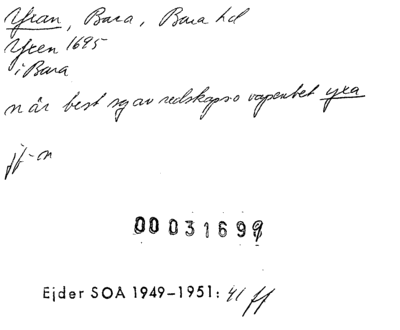 Yxan, Bara, Bara hd
Yxen 1695
i Bara
n är best sg av redskaps- o vapenbet yxa
jf -n
00031699
Ejder SOA 1949-1951: 41 ff